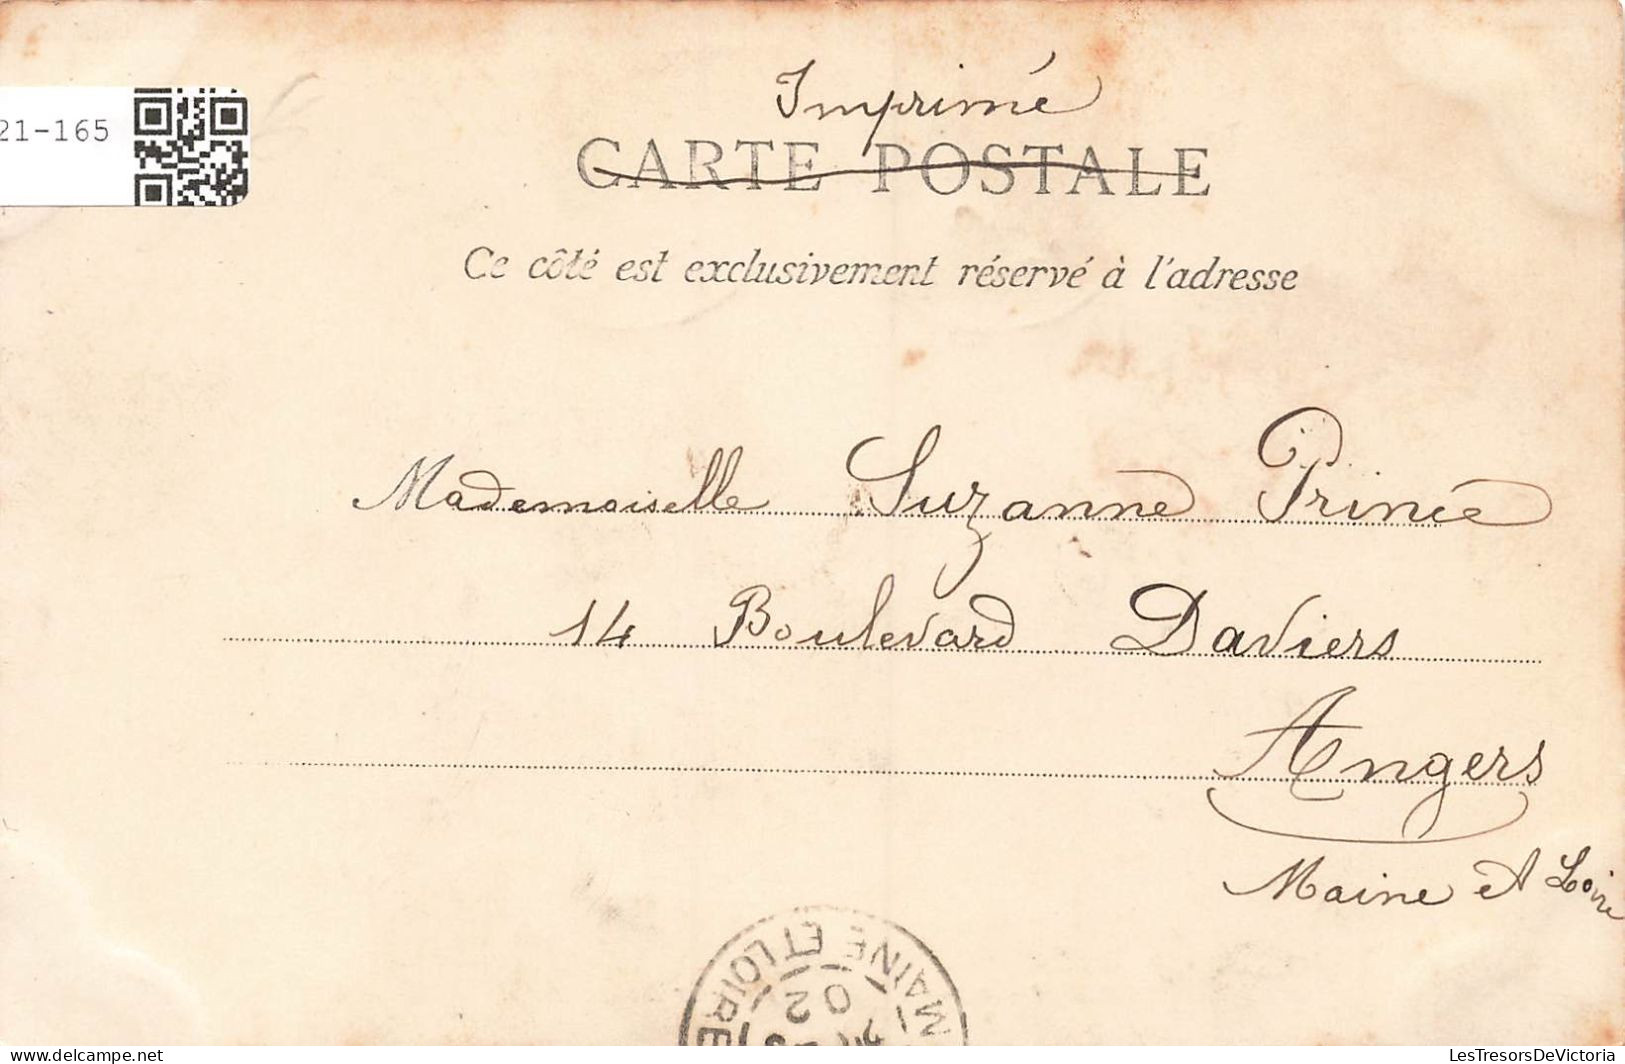 21-165
Imprimé
CARTE POSTALE
Ce côté est exclusivement réservé à l'adresse
Mademoiselle Suzanne Princé
14 Boulevard Daviers
Angers
Maine et Loire
MAINE ET LOIRE
02
LesTresorsDeVictoria